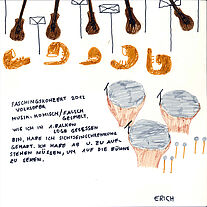 FASCHINGSKONZERT 2012
VOLKSOPER
MUSIK KOMISCH/FALSCH
GESPIELT,
WIE ICH IM 1. BALKON
LOGE GESESSEN
BIN, HABE ICH SICHTSEINSCHRÄNKUNG
GEHABT. ICH HABE AB U. ZU AUF-
STEHEN MÜSSEN, UM AUF DIE BÜHNE
ZU SEHEN.
ERICH